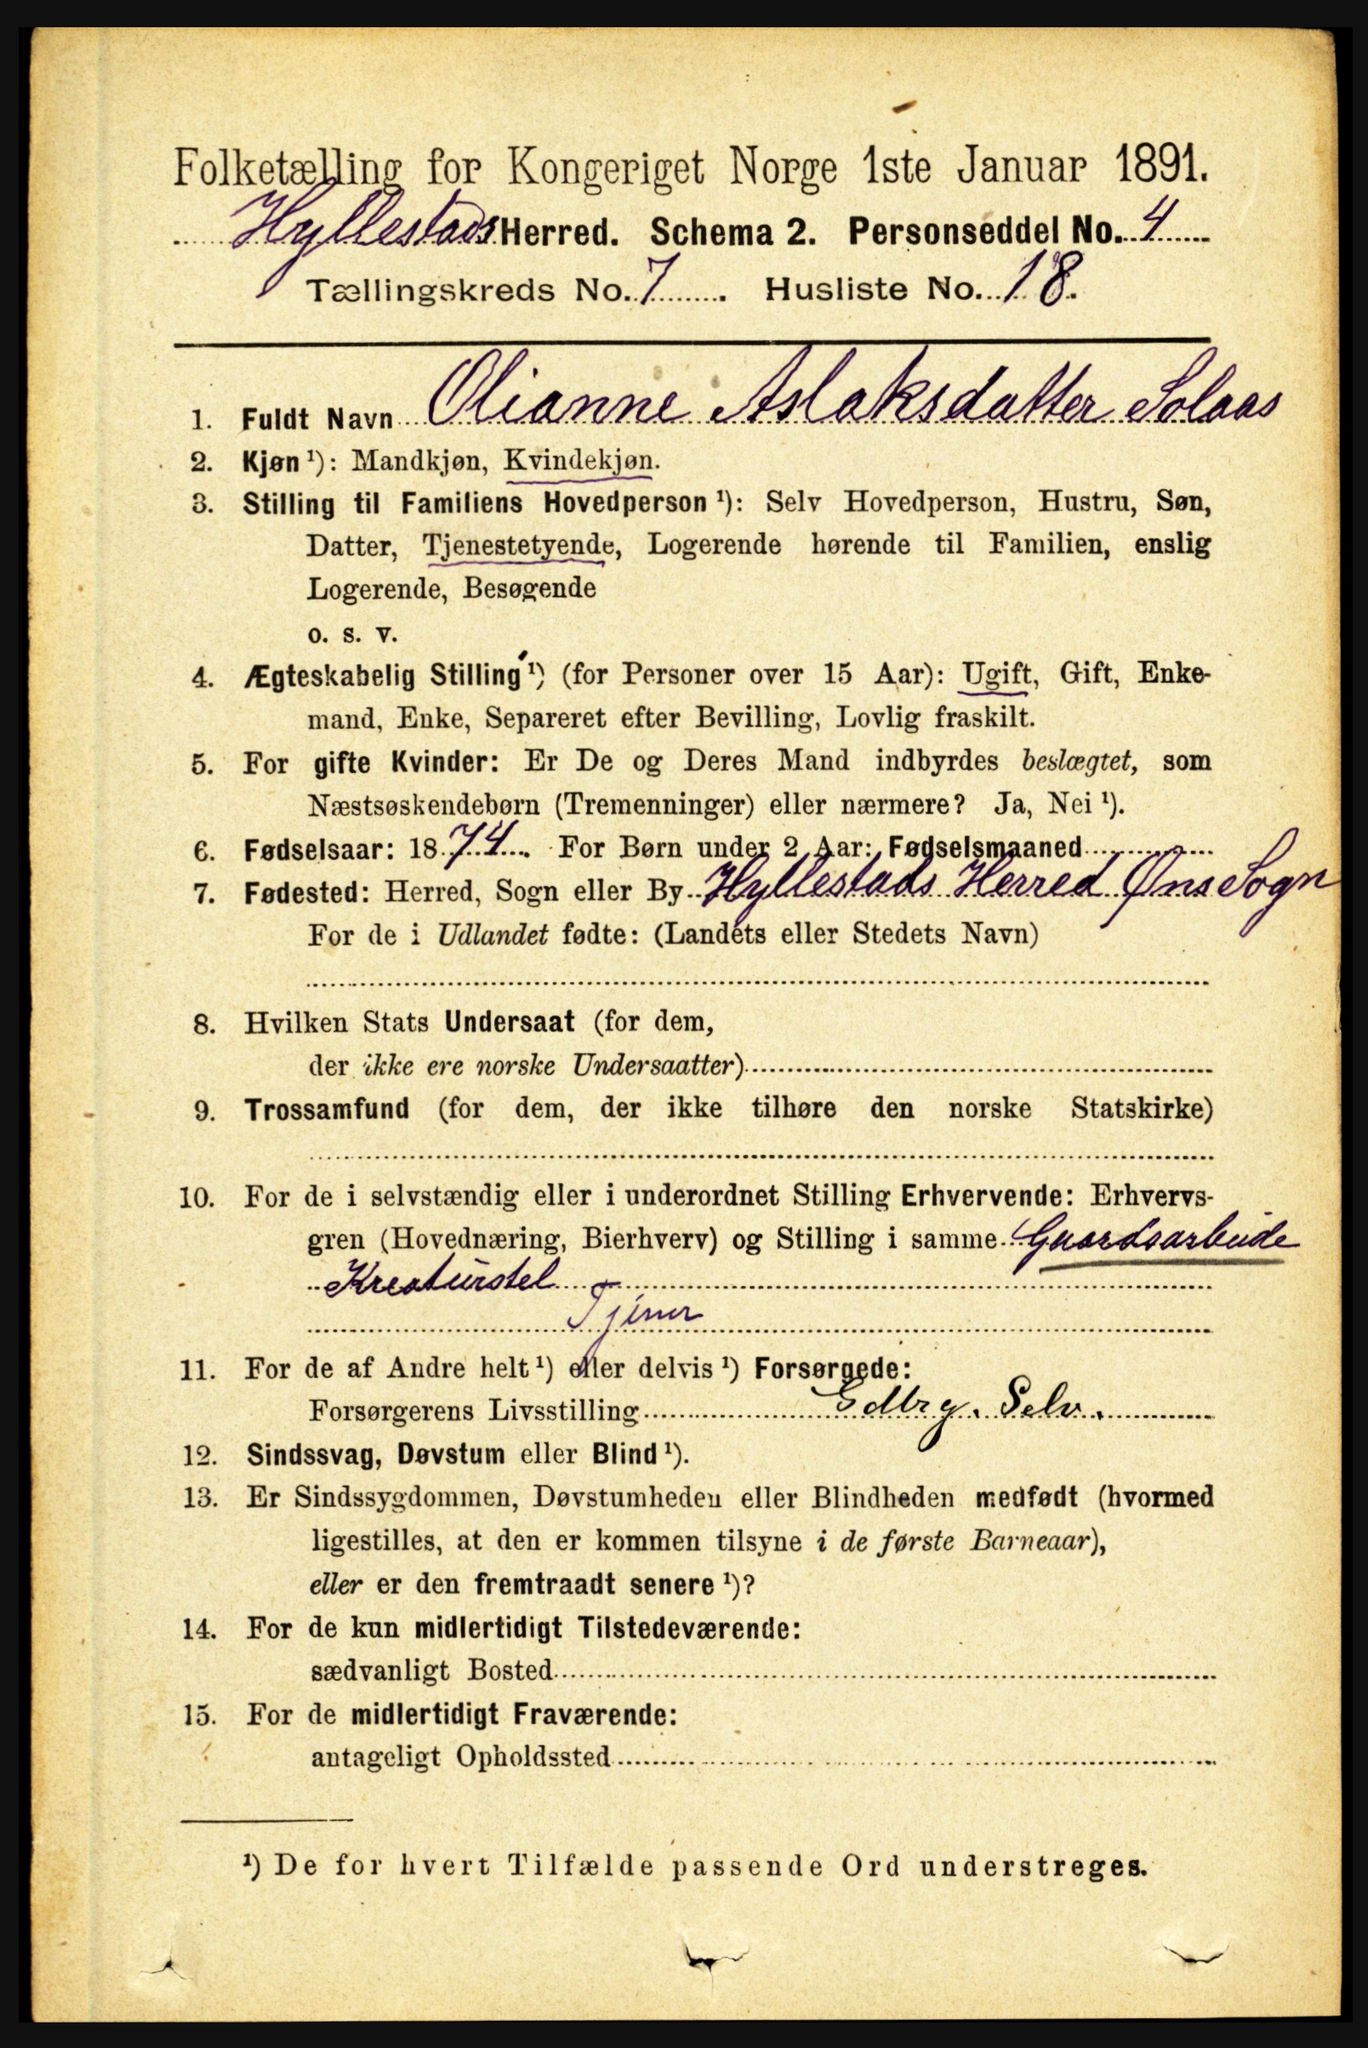 Folketælling for Kongeriget Norge 1ste Januar 1891.
Hyllestads Herred. Schema 2. Personseddel No. 4
Tællingskreds No. 7 Husliste No. 18.
1. Fuldt Navn Olianne Aslaksdatter Solaas
2. Kjøn ¹): Mandkjøn, Kvindekjøn.
3. Stilling til Familiens Hovedperson ¹): Selv Hovedperson, Hustru, Søn,
Datter, Tjenestetyende, Logerende hørende til Familien, enslig
Logerende, Besøgende
o. s. v.
4. Ægteskabelig Stilling ¹) (for Personer over 15 Aar): Ugift, Gift, Enke-
mand, Enke, Separeret efter Bevilling, Lovlig fraskilt.
5. For gifte Kvinder: Er De og Deres Mand indbyrdes beslægtet, som
Næstsøskendebørn (Tremenninger) eller nærmere? Ja, Nei ¹).
6. Fødselsaar: 1874. For Børn under 2 Aar: Fødselsmaaned
7. Fødested: Herred, Sogn eller By Hyllestads Herred Øns Sogn
For de i Udlandet fødte: (Landets eller Stedets Navn)
8. Hvilken Stats Undersaat (for dem,
der ikke ere norske Undersaatter)
9. Trossamfund (for dem, der ikke tilhøre den norske Statskirke)
10. For de i selvstændig eller i underordnet Stilling Erhvervende: Erhvervs-
gren (Hovednæring, Bierhverv) og Stilling i samme Gaardsarbeide
Kreaturstel
Tjener
11. For de af Andre helt ¹) eller delvis ¹) Forsørgede:
Forsørgerens Livsstilling Gdbrg. Selv.
12. Sindssvag, Døvstum eller Blind ¹).
13. Er Sindssygdommen, Døvstumheden eller Blindheden medfødt (hvormed
ligestilles, at den er kommen tilsyne i de første Barneaar),
eller er den fremtraadt senere ¹)?
14. For de kun midlertidigt Tilstedeværende:
sædvanligt Bosted
15. For de midlertidigt Fraværende:
antageligt Opholdssted
¹) De for hvert Tilfælde passende Ord understreges.